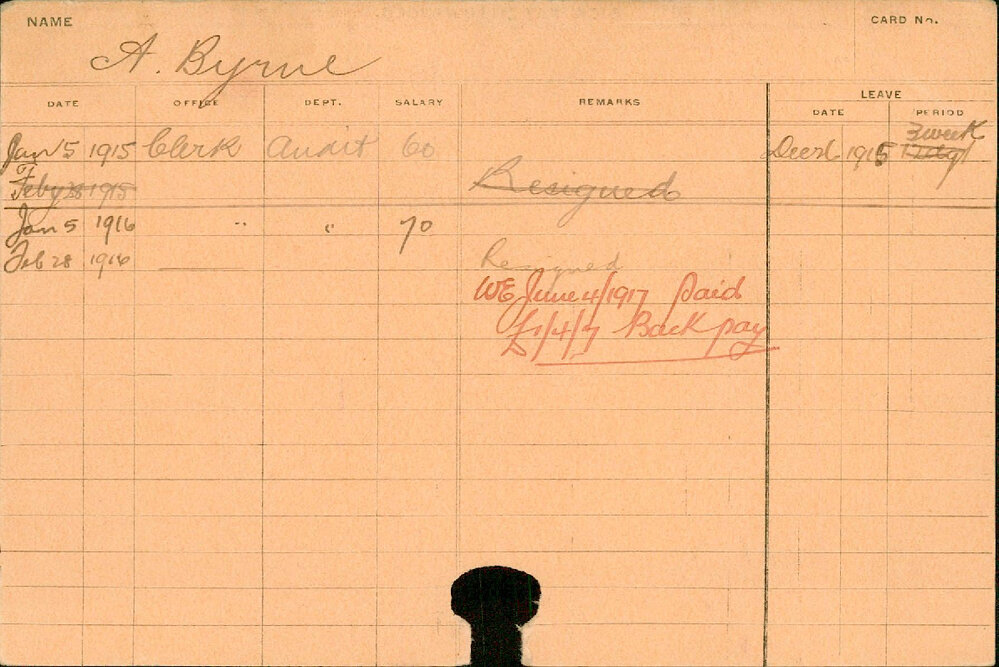 NAME
CARD No.
A. Byrne
LEAVE
DATE OFFICE DEPT. SALARY REMARKS DATE PERIOD
3 week
Jan 5 1915 Clerk Audit 60 1915
Feby 28 1915 Resigned
Jan 5 1916 " " 70
Feb 28 1916 Resigned
WE June 4/1917 Paid
£1/4/7 Back pay